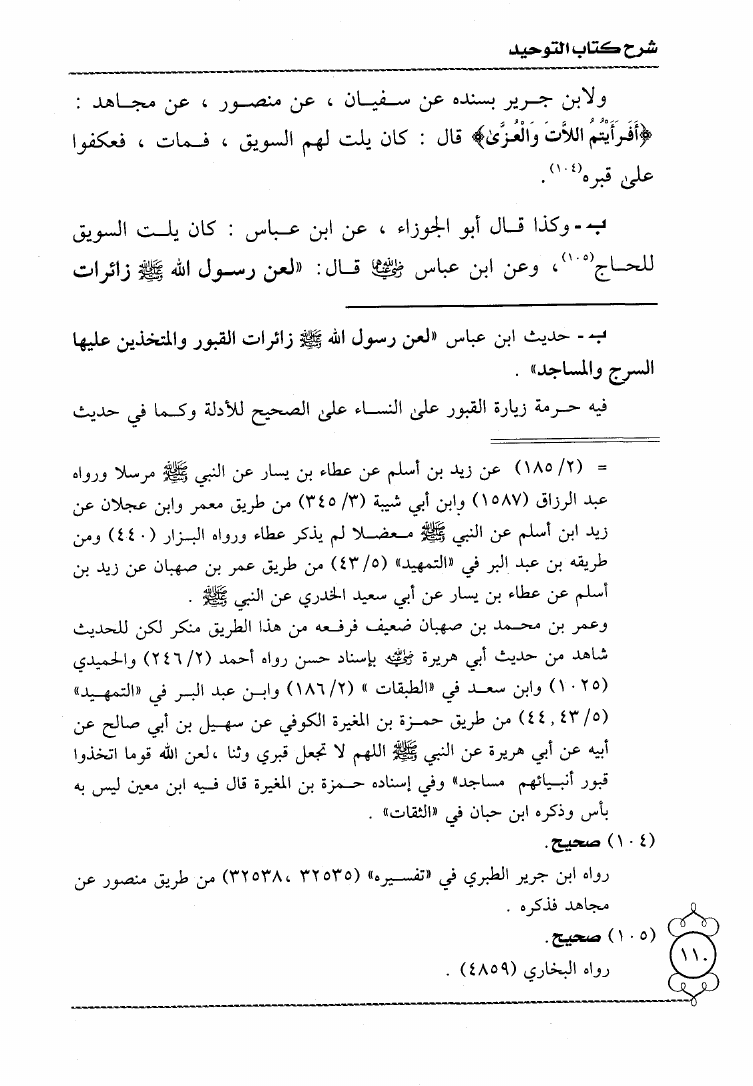 شرح كتاب التوحيد
ولابن جرير بسنده عن سفيان ، عن منصور ، عن مجاهد :
﴿أَفَرَأَيْتُمُ اللَّاتَ وَالْعُزَّىٰ﴾ قال : كان يلت لهم السويق ، فمات ، فعكفوا
علىٰ قبره(١٠٤).
ب- وكذا قال أبو الجوزاء ، عن ابن عباس : كان يلت السويق
للحاج(١٠٥)، وعن ابن عباس رضي الله عنهما قال: «لعن رسول الله ﷺ زائرات
ب- حديث ابن عباس «لعن رسول الله ﷺ زائرات القبور والمتخذين عليها
السرج والمساجد» .
فيه حرمة زيارة القبور علىٰ النساء علىٰ الصحيح للأدلة وكما في حديث
= (١٨٥/٢) عن زيد بن أسلم عن عطاء بن يسار عن النبي ﷺ مرسلا ورواه
عبد الرزاق (١٥٨٧) وابن أبي شيبة (٣٤٥/٣) من طريق معمر وابن عجلان عن
زيد ابن أسلم عن النبي ﷺ معضلا لم يذكر عطاء ورواه البزار (٤٤٠) ومن
طريقه بن عبد البر في «التمهيد» (٤٣/٥) من طريق عمر بن صهبان عن زيد بن
أسلم عن عطاء بن يسار عن أبي سعيد الخدري عن النبي ﷺ .
وعمر بن محمد بن صهبان ضعيف فرفعه من هذا الطريق منكر لكن للحديث
شاهد من حديث أبي هريرة رضي الله عنه بإسناد حسن رواه أحمد (٢٤٦/٢) والحميدي
(١٠٢٥) وابن سعد في «الطبقات » (١٨٦/٢) وابن عبد البر في «التمهيد»
(٤٤,٤٣/٥) من طريق حمزة بن المغيرة الكوفي عن سهيل بن أبي صالح عن
أبيه عن أبي هريرة عن النبي ﷺ اللهم لا تجعل قبري وثنا ،لعن الله قوما اتخذوا
قبور أنبيائهم مساجد» وفي إسناده حمزة بن المغيرة قال فيه ابن معين ليس به
بأس وذكره ابن حبان في «الثقات» .
(١٠٤) صحيح.
رواه ابن جرير الطبري في «تفسيره» (٣٢٥٣٥ ،٣٢٥٣٨) من طريق منصور عن
مجاهد فذكره .
(١٠٥) صحيح.
رواه البخاري (٤٨٥٩) .
١١٠